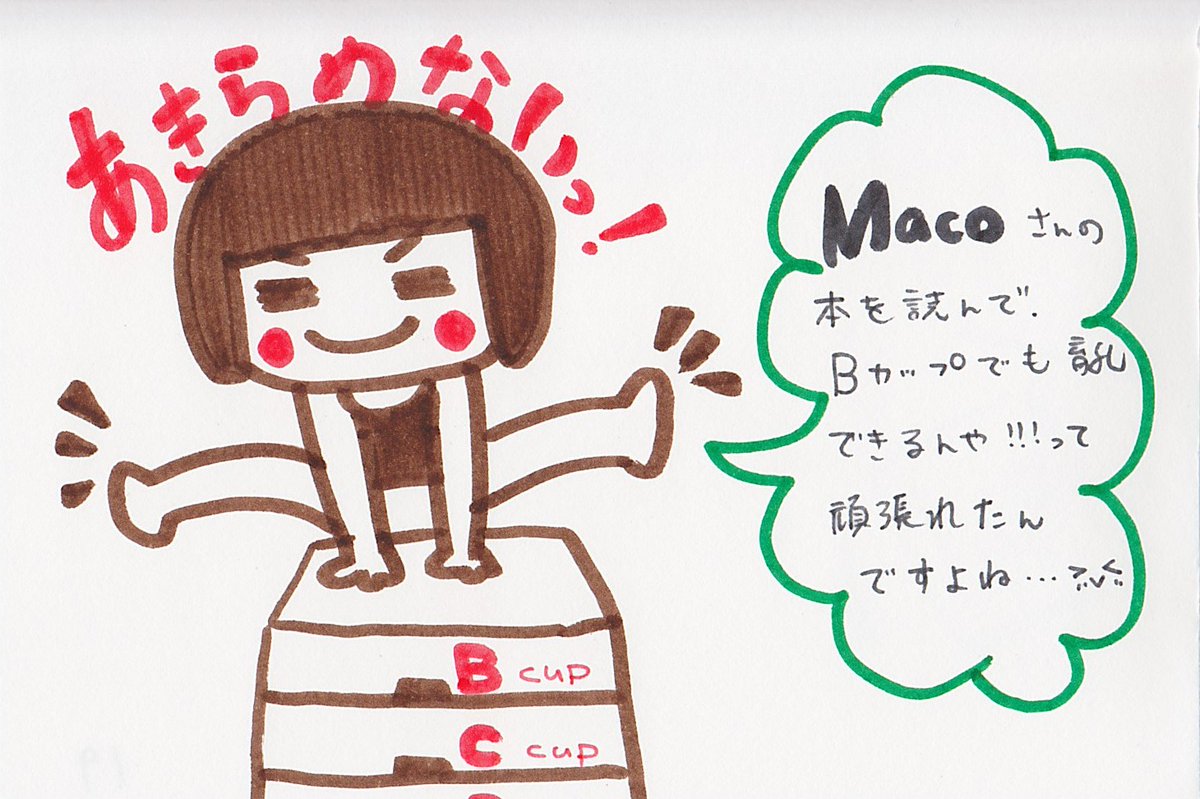 あきらめないっ!
Macoさんの
本を読んで.
Bカップでも育乳
できるんや!!!って
頑張れたん
ですよね…
B cup
C cup